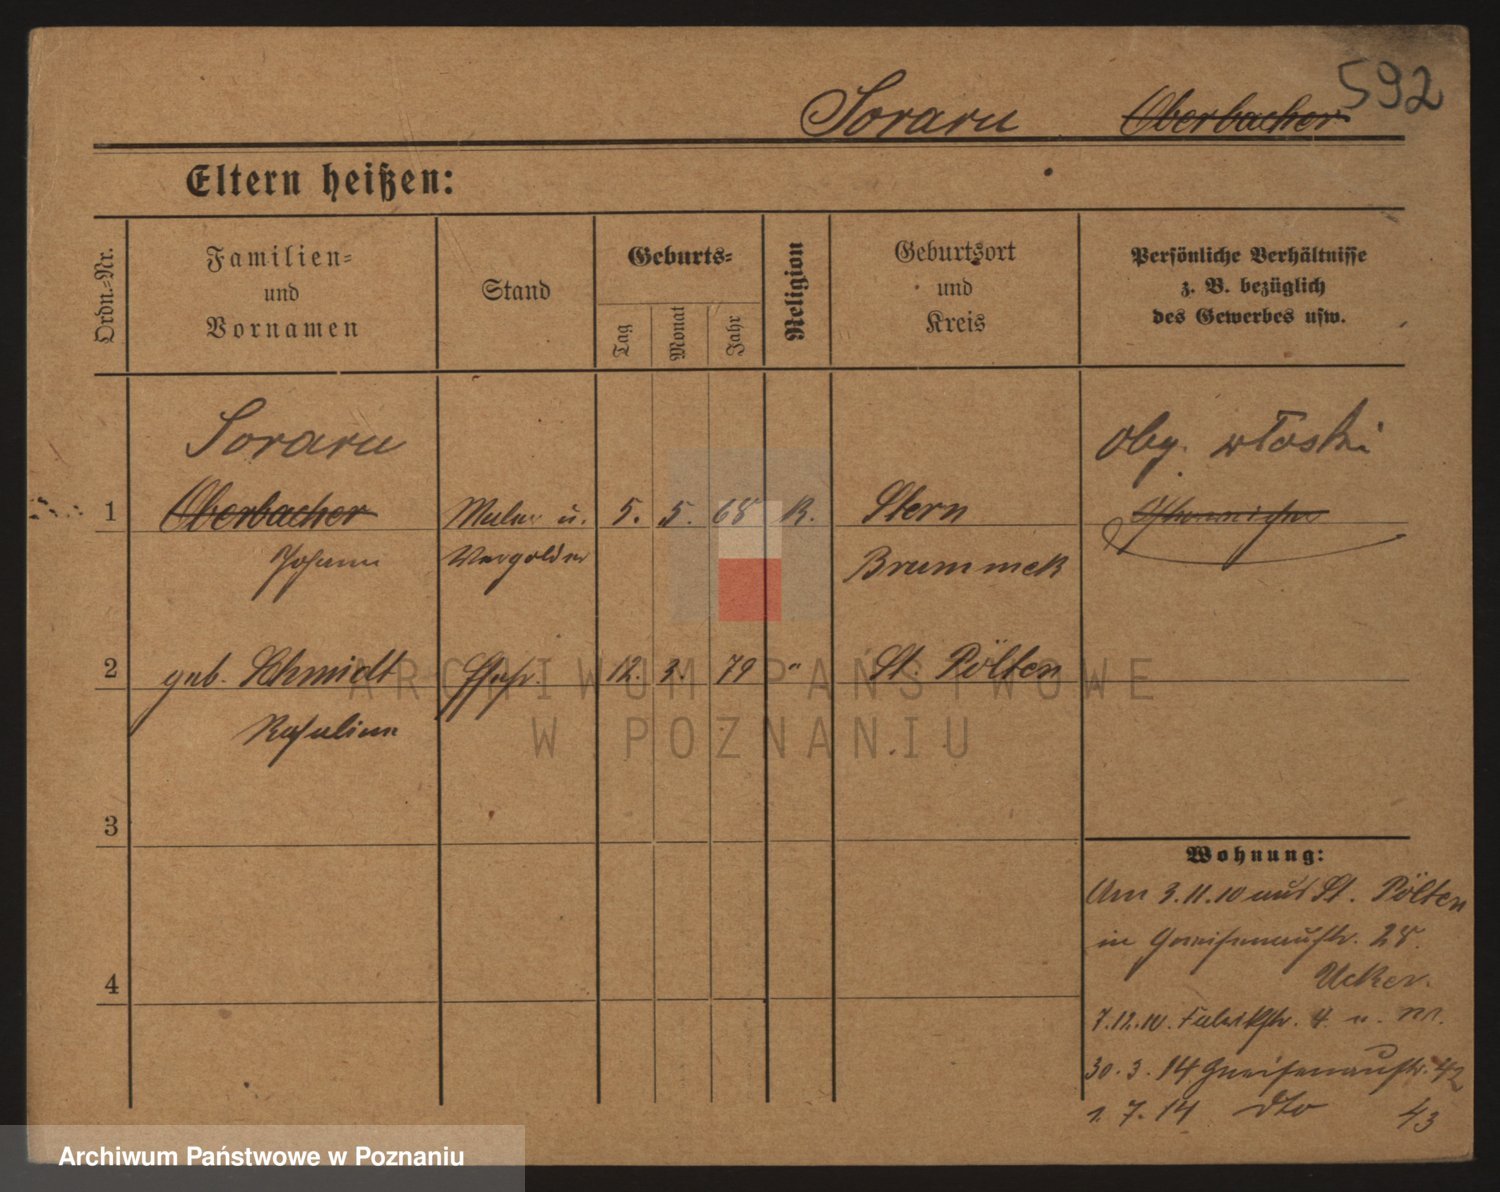 592
Soraru Oberbacher
Eltern heißen:
Ordn.=Nr.
Familien=
und
Vornamen
Stand
Geburts=
Tag
Monat
Jahr
Religion
Geburtsort
und
Kreis
Persönliche Verhältnisse
z. B. bezüglich
des Gewerbes usw.
Soraru
oby. włoski
1 Oberbacher Maler u. 5. 5. 68 K. Stern
Johann Vergolder Brunneck
2 geb. Schmidt Ehefr. 12. 3. 79 " St. Pölten
Rosaline
3
4
Wohnung:
Am 3.11.10 aus St. Pölten
in Gneisenaustr. 28.
Ucker.
7.12.10. Fabrikstr. 4. u.
30.3.14 Gneisenaustr. 42
1.7.14 dto 43
ARCHIWUM PAŃSTWOWE
W POZNANIU
Archiwum Państwowe w Poznaniu